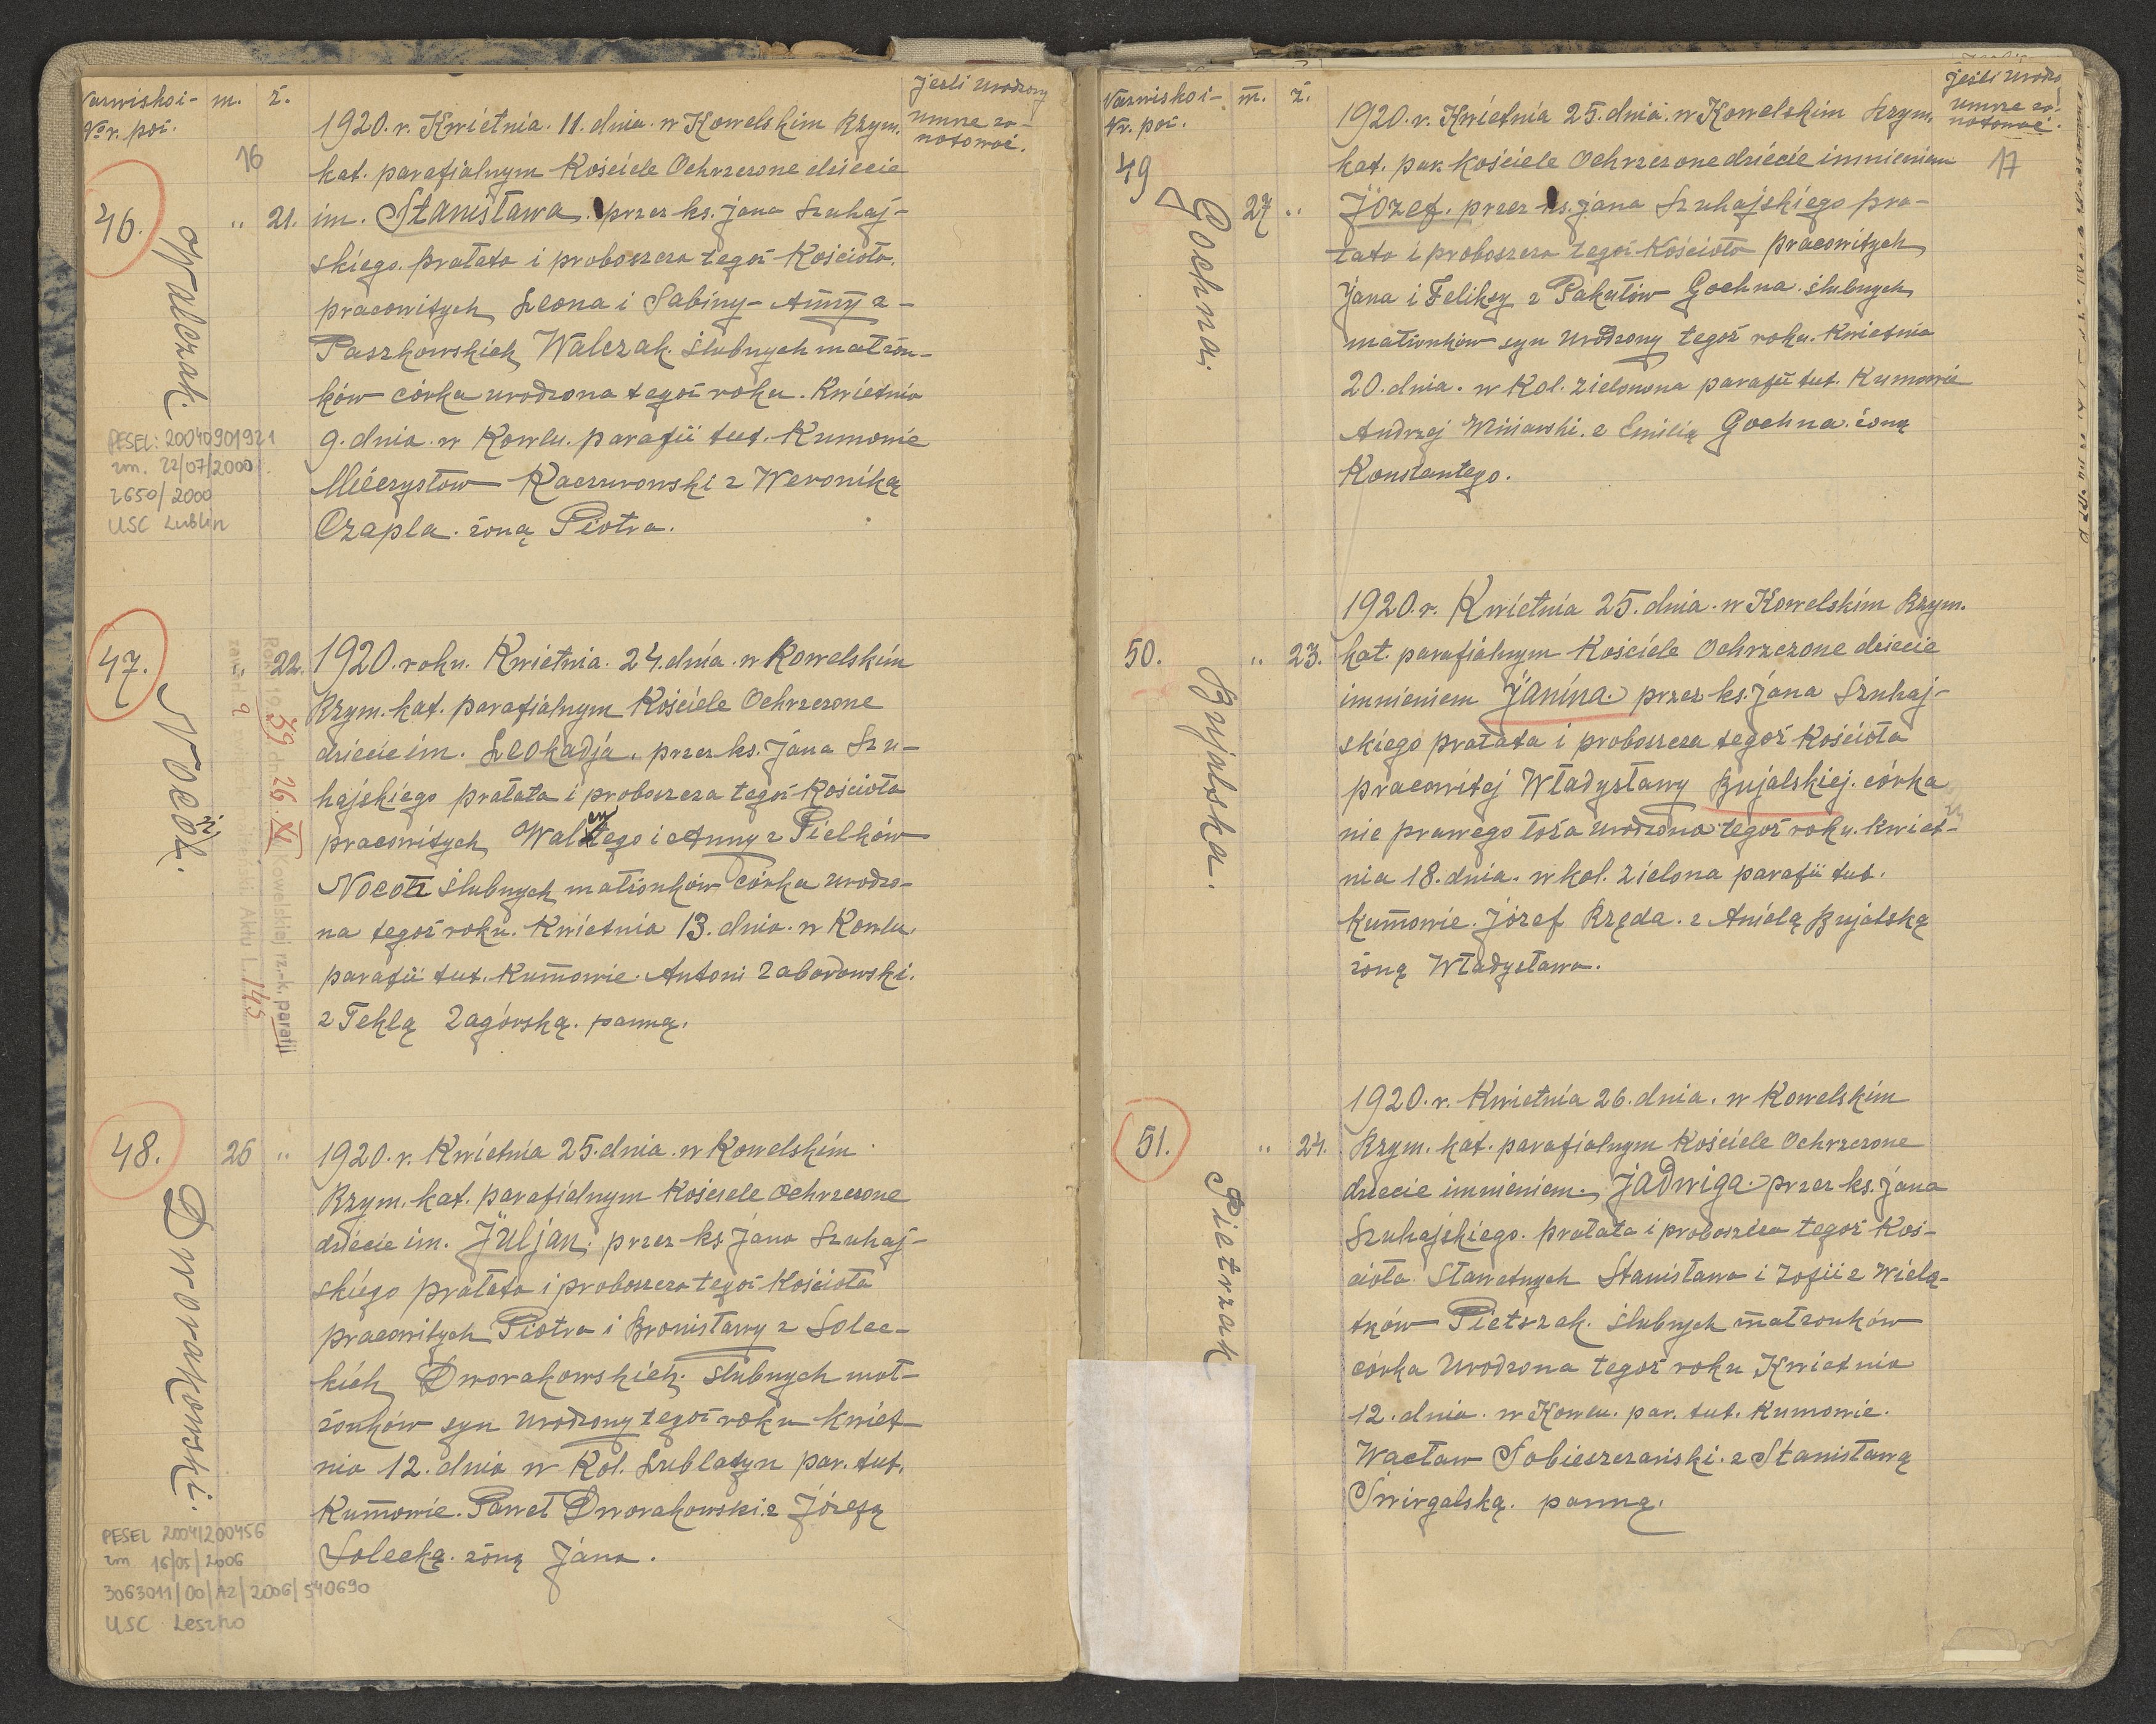 Nazwisko i m. ż.
Nr. poż.
Jeśli urodzony
umrze za-
notować.
16
46.
Walczak.
" 21.
1920. r. Kwietnia. 11. dnia. w Kowelskim Rzym.
kat. parafialnym Kościele Ochrzczone dziecie
im. Stanisława. przez ks. Jana Szuhaj-
skiego. prałata i proboszcza tegoż Kościoła.
pracowitych Leona i Sabiny-Anny z-
Paszkowskich Walczak. ślubnych małżon-
ków córka urodzona tegoż roku. Kwietnia
9. dnia. w Kowlu. parafii tut. Kumowie
Mieczysław Kaczurowski z Weroniką
Czapla. żoną Piotra.
PESEL: 20040901921
zm. 22/07/2000 r.
2650/2000
USC Lublin
47.
Nocoń.
" 22.
1920. roku. Kwietnia. 24. dnia. w Kowelskim
Rzym. kat. parafialnym Kościele Ochrzczone
dziecie im. Leokadja. przez ks. Jana Szu-
hajskiego prałata i proboszcza tegoż Kościoła
pracowitych Walentego i Anny z Pielków
Nocoń ślubnych małżonków córka urodzo-
na tegoż roku. Kwietnia 13. dnia. w Kowlu.
parafii tut. Kumowie. Antoni Zaborowski.
z Teklą Zagórską. panną.
59 dn. 26 XI Kowelskiej rz.-k. parafji
Aktu L. 145
48.
Dworakowski.
26 "
1920. r. Kwietnia 25. dnia. w Kowelskim
Rzym. kat. parafialnym Kościele Ochrzczone
dziecie im. Juljan. przez ks Jana Szuhaj-
skiego prałata i proboszcza tegoż Kościoła
pracowitych Piotra i Bronisławy z Solec-
kich Dworakowskich. ślubnych mał-
żonków syn urodzony tegoż roku kwiet
nia 12. dnia w Kol. Lublatyn par. tut.
Kumowie. Paweł Dworakowski z Józefą
Solecką. żoną Jana.
PESEL 20041200456
zm 16/05/2006
3063011/00/AZ/2006/540690
USC Leszno
Nazwisko i- m. ż.
Nr. poż.
Jeśli urodzo
umrze za-
notować.
17
49
Gochna.
27 "
1920. r. Kwietnia 25. dnia. w Kowelskim Rzym.
kat. par. kościele Ochrzczone dziecie imnieniem
Józef. przez ks. Jana Szuhajskiego pra-
łata i proboszcza tegoż Kościoła pracowitych
Jana i Feliksy z Pakułów Gochna. ślubnych
małżonków syn urodzony tegoż roku. Kwietnia
20. dnia. w Kol. Zielonona parafii tut. Kumowie
Andrzej Winiarski. z Emilią Gochna. żoną
Konstantego.
50.
Bujalska.
" 23.
1920. r. Kwietnia 25. dnia. w Kowelskim Rzym.
kat. parafialnym Kościele Ochrzczone dziecie
imnieniem Janina. przez ks. Jana Szuhaj-
skiego prałata i proboszcza tegoż Kościoła
pracowitej Władysławy Bujalskiej. córka
nie prawego łoża urodzona tegoż roku. kwiet-
nia 18. dnia. w kol. Zielona parafii tut.
Kumowie. Józef Rzęda. z Anielą Bujalską
żoną Władysława.
51.
Pietrzak
" 24.
1920. r. Kwietnia 26. dnia. w Kowelskim
Rzym. kat. parafialnym Kościele Ochrzczone
dziecie imnieniem. Jadwiga przez ks. Jana
Szuhajskiego. prałata i proboszcza tegoż Koś-
cioła Sławetnych Stanisława i Zofii z Wielą-
tków Pietszak. ślubnych małżonków
córka Urodzona tegoż roku Kwietnia
12. dnia. w Kowlu. par. tut. Kumowie.
Wacław Sobieszczański. z Stanisławą
Świrgalską. panną.